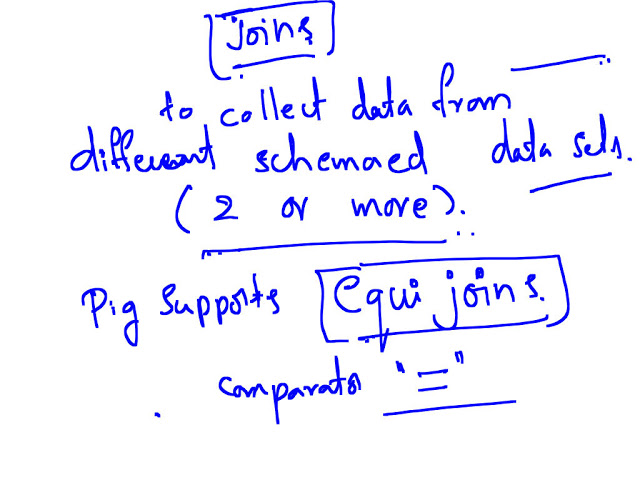 Joins
to collect data from
different schemaed data sets.
( 2 or more).
Pig supports equi joins.
comparator "="